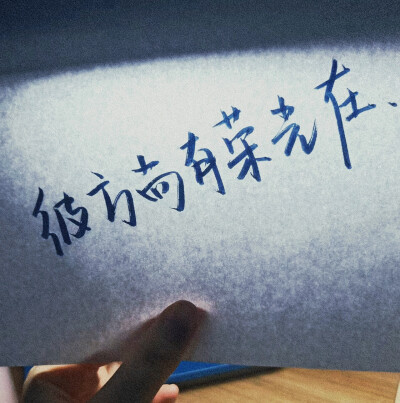 彼方尚有荣光在、